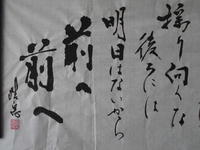 振り向くな
後ろには
明日はないから
前へ
前へ